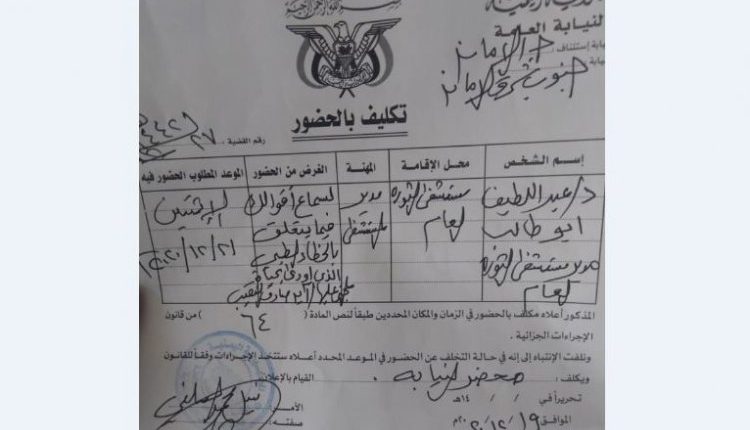 النيابة العامة
نيابة إستئناف: ج الأمانة
نيابة جنوب شرق الأمانة
تكليف بالحضور
رقم القضية
إسم الشخص
محل الإقامة
المهنة
الغرض من الحضور
الموعد المطلوب الحضور فيه
د/عبد اللطيف
ابو طالب
مدير مستشفى الثوره
العام
مستشفى الثوره
العام
مدير
المستشفى
لسماع أقوالك
فيما يتعلق
بالخطاء الطبي
الذي اودى بحياة
الإثنين
٢٠٢٠/١٢/٢١
المذكور أعلاه مكلف بالحضور في الزمان والمكان المحددين طبقاً لنص المادة ( ٦٤ ) من قانون
الإجراءات الجزائية.
ونلفت الإنتباه إلى إنه في حالة التخلف عن الحضور في الموعد المحدد أعلاه ستتخذ الإجراءات وفقاً للقانون
ويكلف: محضر النيابه القيام بالإعلان.
تحريراً في / / ١٤هـ
الموافق ١٩/١٢/٢٠م
صفته: